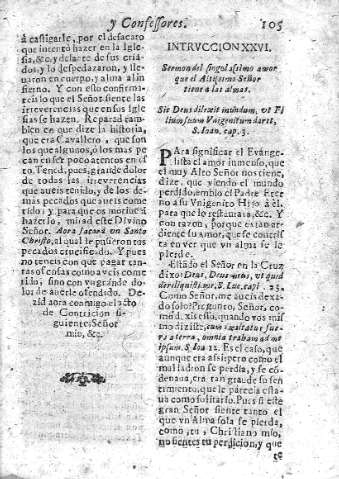 y Confessores. 105
à castigarle, por el desacato
que intentò hazer en la Igle-
sia, &c. y delante de sus cria-
dos, y lo despedazaron, y lle-
uaron en cuerpo, y alma al in-
fierno. Y con esto confirma-
is lo que el Señor siente las
irreverencias que en sus Igle-
sias se hazen. Reparad tam-
bien en que dize la historia,
que era Cavallero, que son
los que algunos, ò los mas pe
can en ser poco atentos en es
to. Tened, pues, grande dolor
de todas las irreverencias
que aueis tenido, y de los de-
màs pecados que aueis come
tido; y para que os mortueis
hazerlo, mirad este Divino
Señor. Aora sacarà un Santo
Christo, al qual le pusieron tus
pecados crucificado. Y pues
no teneis con que pagar tan-
tas ofensas como aveis come
tido, sino con vn grande do-
lor de averle ofendido. De-
zid aora conmigo el acto
de Contricion si-
guiente, Señor
mio, &c.
INTRVCCION XXVI.
Sermon del singularissimo amor
que el Altissimo Señor
tiene a las almas.
Sic Deus dilexit mundum, vt Fi
lium suum Vnigenitum daret,
S. Ioan. cap. 3.
PAra significar el Evange-
lista el amor inmenso, que
el muy Alto Señor nos tiene,
dize, que viendo el mundo
perdido, embiò el Padre Eter
no a su Vnigenito Hijo à èl,
para que lo restaurara, &c. Y
con razon, porque es tan ar-
diente su amor, que se contris
ta en ver que vn alma se le
pierde.
Estando el Señor en la Cruz
dixo: Deus, Deus meus, vt quid
dereliquisti me, S. Luc. capi. 23.
Como Señor, me aueis dexa-
do solo? estos, Señor, como
dixistis esto, quando vos mis
mo dixiste; cum exaltatus fue-
ro a terra, omnia traham ad me
ipsum. S. Ioa 12. Es el caso, que
aunque era assi pero como el
mal ladron se perdia, y se cō-
denaua, era tan grande su sen
timiento, que le parecia esta-
ua como solitario. Pues si este
gran Señor siente tanto el
que vn Alma sola se pierda,
como, tu, Christiano mio,
no sientes tu perdicion, y que
se